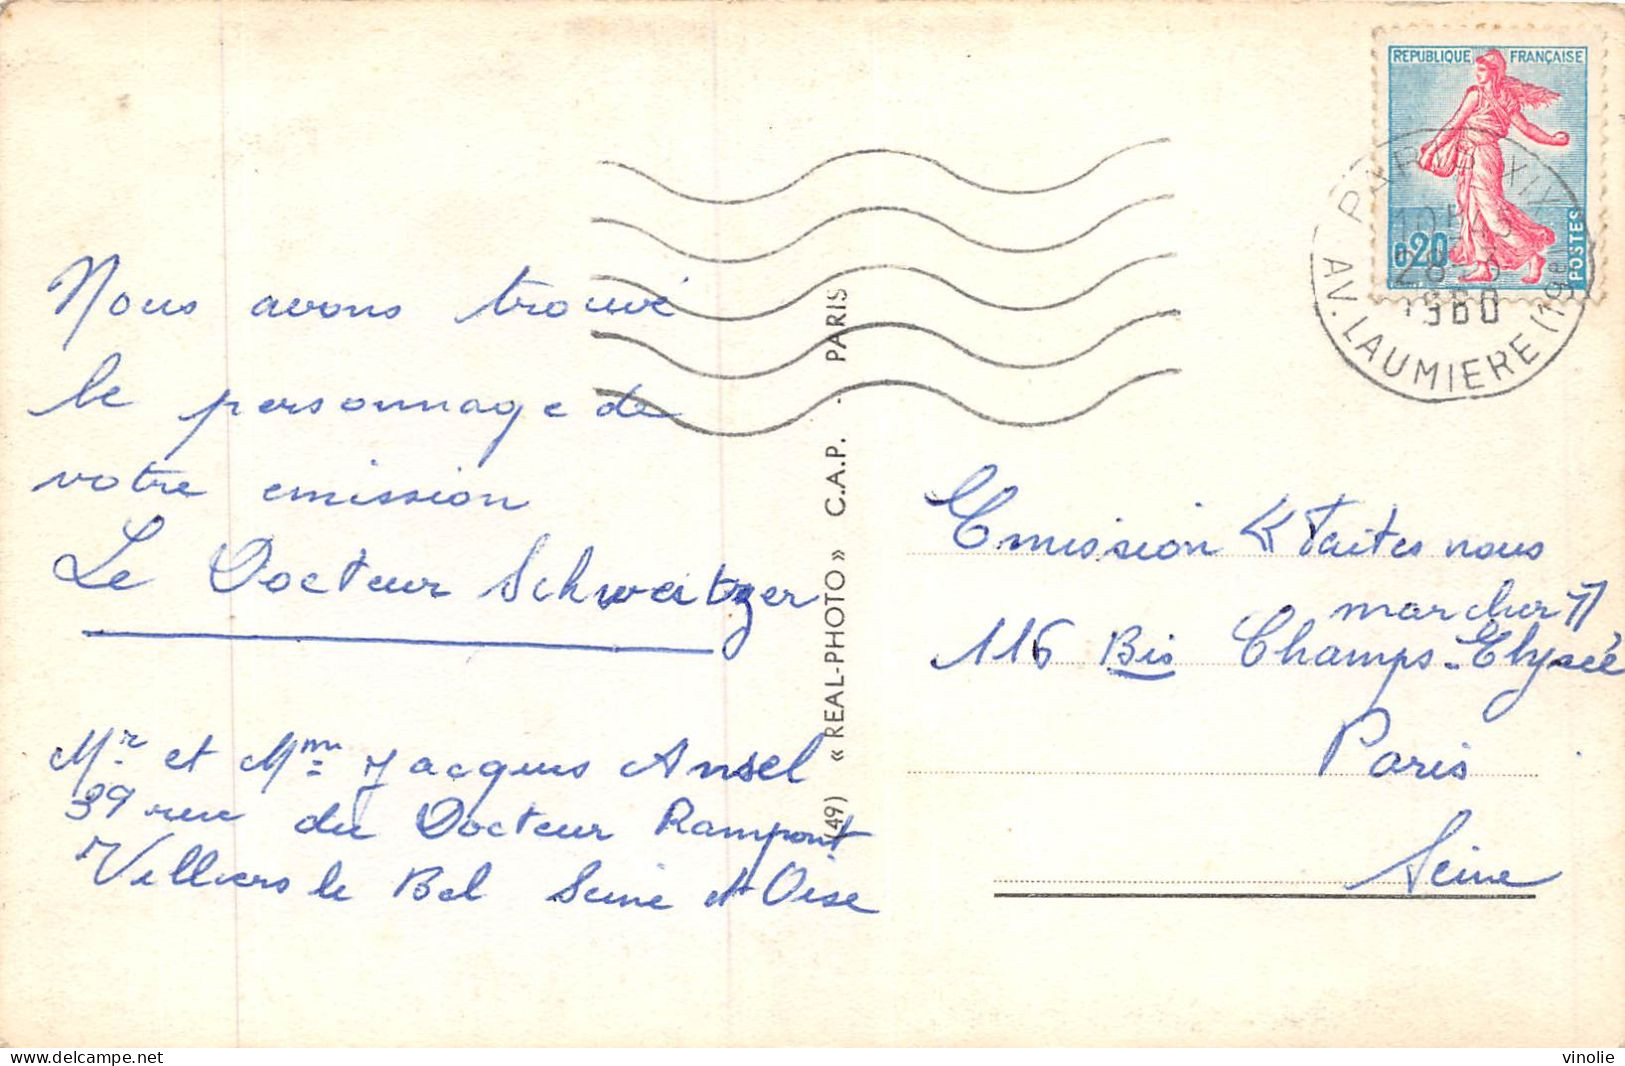 Nous avons trouvé
le personnage de
votre emission
Le Docteur Schweitzer
Mr et Mme Jacques Ansel
39 rue du Docteur Rampont
Villiers le Bel Seine et Oise
(49) « REAL-PHOTO » C.A.P. - PARIS
REPUBLIQUE FRANÇAISE
0,20
POSTES
PARIS XIX
10H45
1960
AV. LAUMIERE (19e
Emission « Faites nous
marcher »
116 Bis Champs-Elysée
Paris
Seine
delcampe.net
vinolie